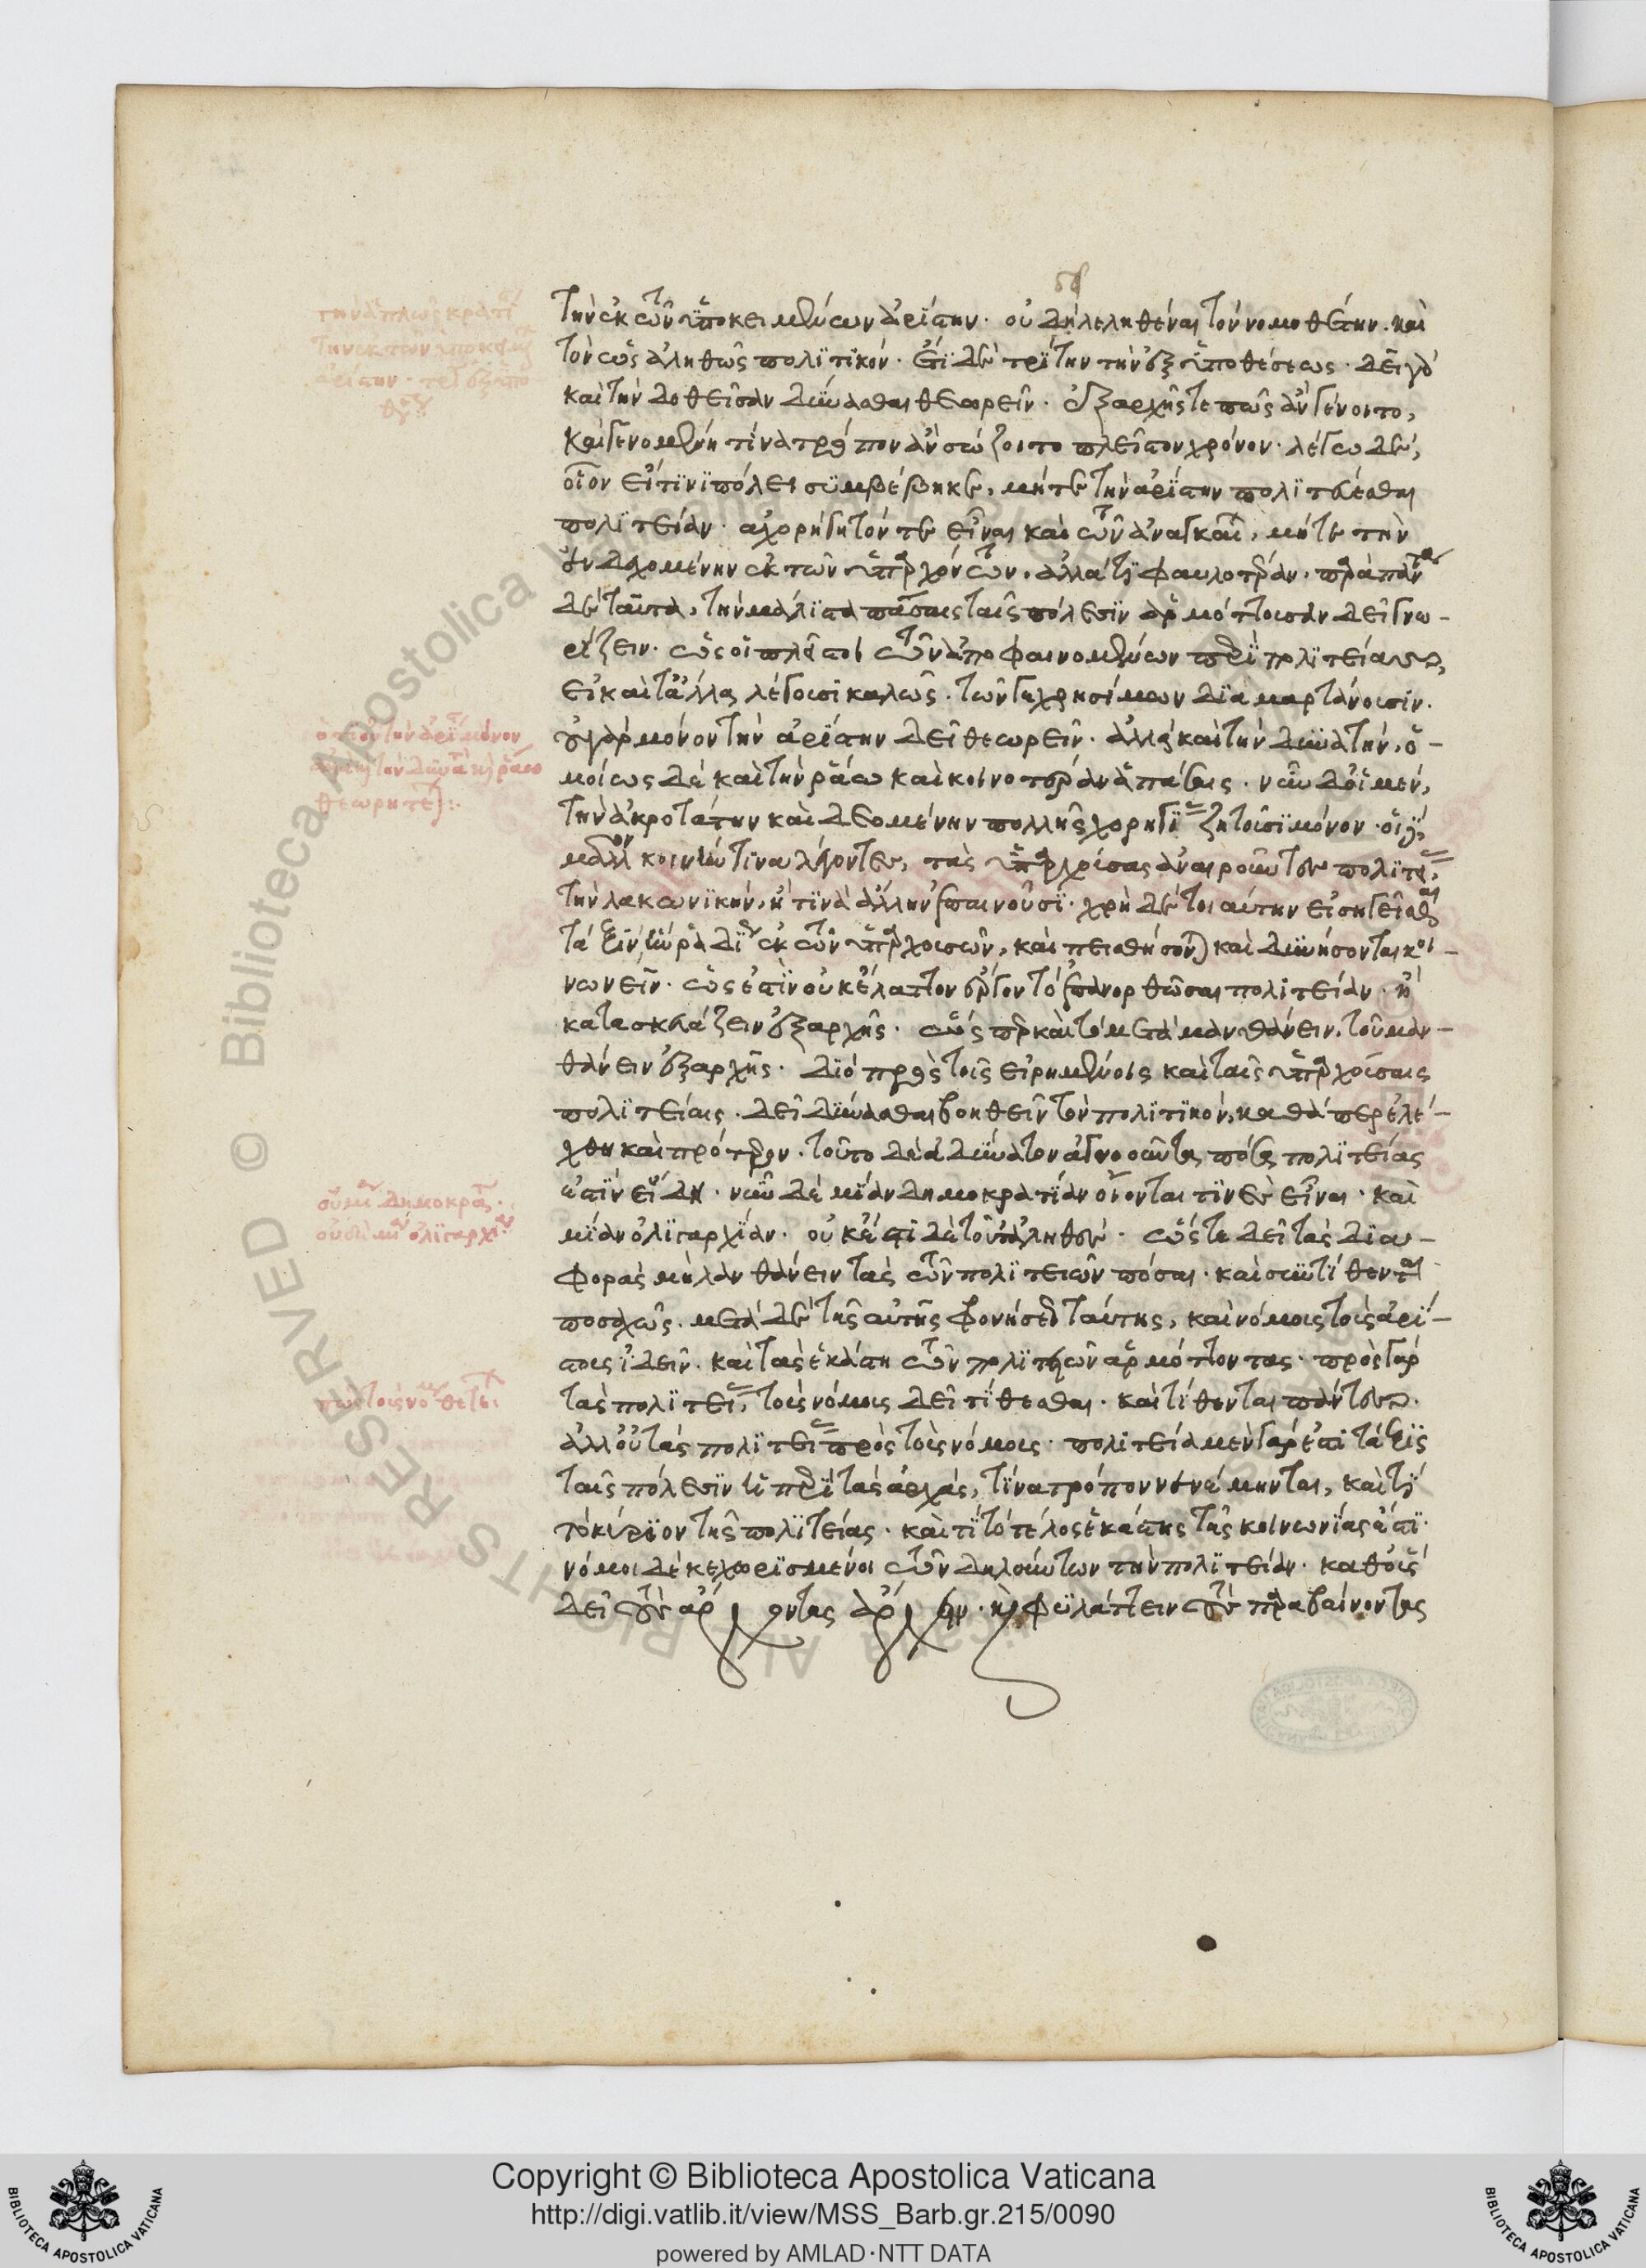 τὴν ἐκ τῶν ὑποκειμένων ἀρίστην. οὐ δεῖ λεληθέναι τὸν νομοθέτην. καὶ
τὸν ὡς ἀληθῶς πολϊτικόν. ἔτι δὲ τρίτην τὴν ἐξ ὑποθέσεως. δεῖ γὰρ
καὶ τὴν δοθεῖσαν δύνασθαι θεωρεῖν. ἐξαρχῆς τε πῶς ἂν γένοιτο,
καὶ γενομένη τίνα τρόπον ἂν σώζοιτο πλεῖστον χρόνον. λέγω δὲ,
οἷον εἴ τινι πόλει συμβέβηκε, μήτε τὴν ἀρίστην πολιτεύεσθαι
πολιτείαν. ἀχορήγητόν τε εἶναι καὶ τῶν ἀναγκαίων, μήτε τὴν
ἐνδεχομένην ἐκ τῶν ὑπαρχόντων. ἀλλά τι φαυλοτέραν. παρὰ πάντα
δὲ ταῦτα, τὴν μάλιστα πάσαις ταῖς πόλεσιν ἁρμόττουσαν δεῖ γνω-
ρίζειν. ὡς οἱ πλεῖστοι τῶν ἀποφαινομένων περὶ πολιτείας,
εἰ καὶ τἄλλα λέγουσι καλῶς. τῶν γε χρησίμων διαμαρτάνουσιν.
οὐ γὰρ μόνον τὴν ἀρίστην δεῖ θεωρεῖν. ἀλλὰ καὶ τὴν δυνατήν. ὁ-
μοίως δὲ καὶ τὴν ῥάω καὶ κοινοτέραν ἁπάσαις. νῦν δ' οἱ μὲν,
τὴν ἀκροτάτην καὶ δεομένην πολλῆς χορηγίας ζητοῦσι μόνον. οἱ δὲ
μᾶλλον κοινήν τινα λέγοντες, τὰς ὑπαρχούσας ἀναιροῦντες πολιτείας,
τὴν λακωνικὴν, ἤ τινα ἄλλην ἐπαινοῦσι. χρὴ δὲ τοιαύτην εἰσηγεῖσθαι
τάξιν, ἣν ῥᾳδίως ἐκ τῶν ὑπαρχουσῶν, καὶ πεισθήσονται καὶ δυνήσονται κοι-
νωνεῖν. ὡς ἔστιν οὐκ ἔλαττον ἔργον τὸ ἐπανορθῶσαι πολιτείαν. ἢ
κατασκευάζειν ἐξαρχῆς. ὥσπερ καὶ τὸ μεταμανθάνειν. τοῦ μαν-
θάνειν ἐξαρχῆς. διὸ πρὸς τοῖς εἰρημένοις καὶ ταῖς ὑπαρχούσαις
πολιτείαις. δεῖ δύνασθαι βοηθεῖν τὸν πολιτικὸν, καθάπερ ἐλέ-
χθη καὶ πρότερον. τοῦτο δὲ ἀδύνατον ἀγνοοῦντα πόσα πολιτείας
ἐστὶν εἴδη. νῦν δὲ μίαν δημοκρατίαν οἴονται τινὲς εἶναι. καὶ
μίαν ὀλιγαρχίαν. οὐκ ἔστι δὲ τοῦτ' ἀληθές. ὥστε δεῖ τὰς δια-
φορὰς μὴ λανθάνειν τὰς τῶν πολιτειῶν πόσαι. καὶ συντίθενται
ποσαχῶς. μετὰ δὲ τῆς αὐτῆς φρονήσεως ταύτης, καὶ νόμους τοὺς ἀρί-
στους ἰδεῖν. καὶ τὰς ἑκάστῃ τῶν πολιτειῶν ἁρμόττοντας. πρὸς γὰρ
τὰς πολιτείας τοὺς νόμους δεῖ τίθεσθαι. καὶ τίθενται πάντες.
ἀλλ' οὐ τὰς πολιτείας πρὸς τοὺς νόμους. πολιτεία μὲν γάρ ἐστι τάξις
ταῖς πόλεσιν ἡ περὶ τὰς ἀρχὰς, τίνα τρόπον νενέμηνται, καὶ τί
τὸ κύριον τῆς πολιτείας. καὶ τί τὸ τέλος ἑκάστης τῆς κοινωνίας ἐστί.
νόμοι δὲ κεχωρισμένοι τῶν δηλούντων τὴν πολιτείαν. καθ' οὓς
δεῖ τοὺς ἄρχοντας ἄρχειν. καὶ φυλάττειν τοὺς παραβαίνοντας
Copyright © Biblioteca Apostolica Vaticana
http://digi.vatlib.it/view/MSS_Barb.gr.215/0090
powered by AMLAD·NTT DATA
BIBLIOTECA APOSTOLICA VATICANA
BIBLIOTECA APOSTOLICA VATICANA